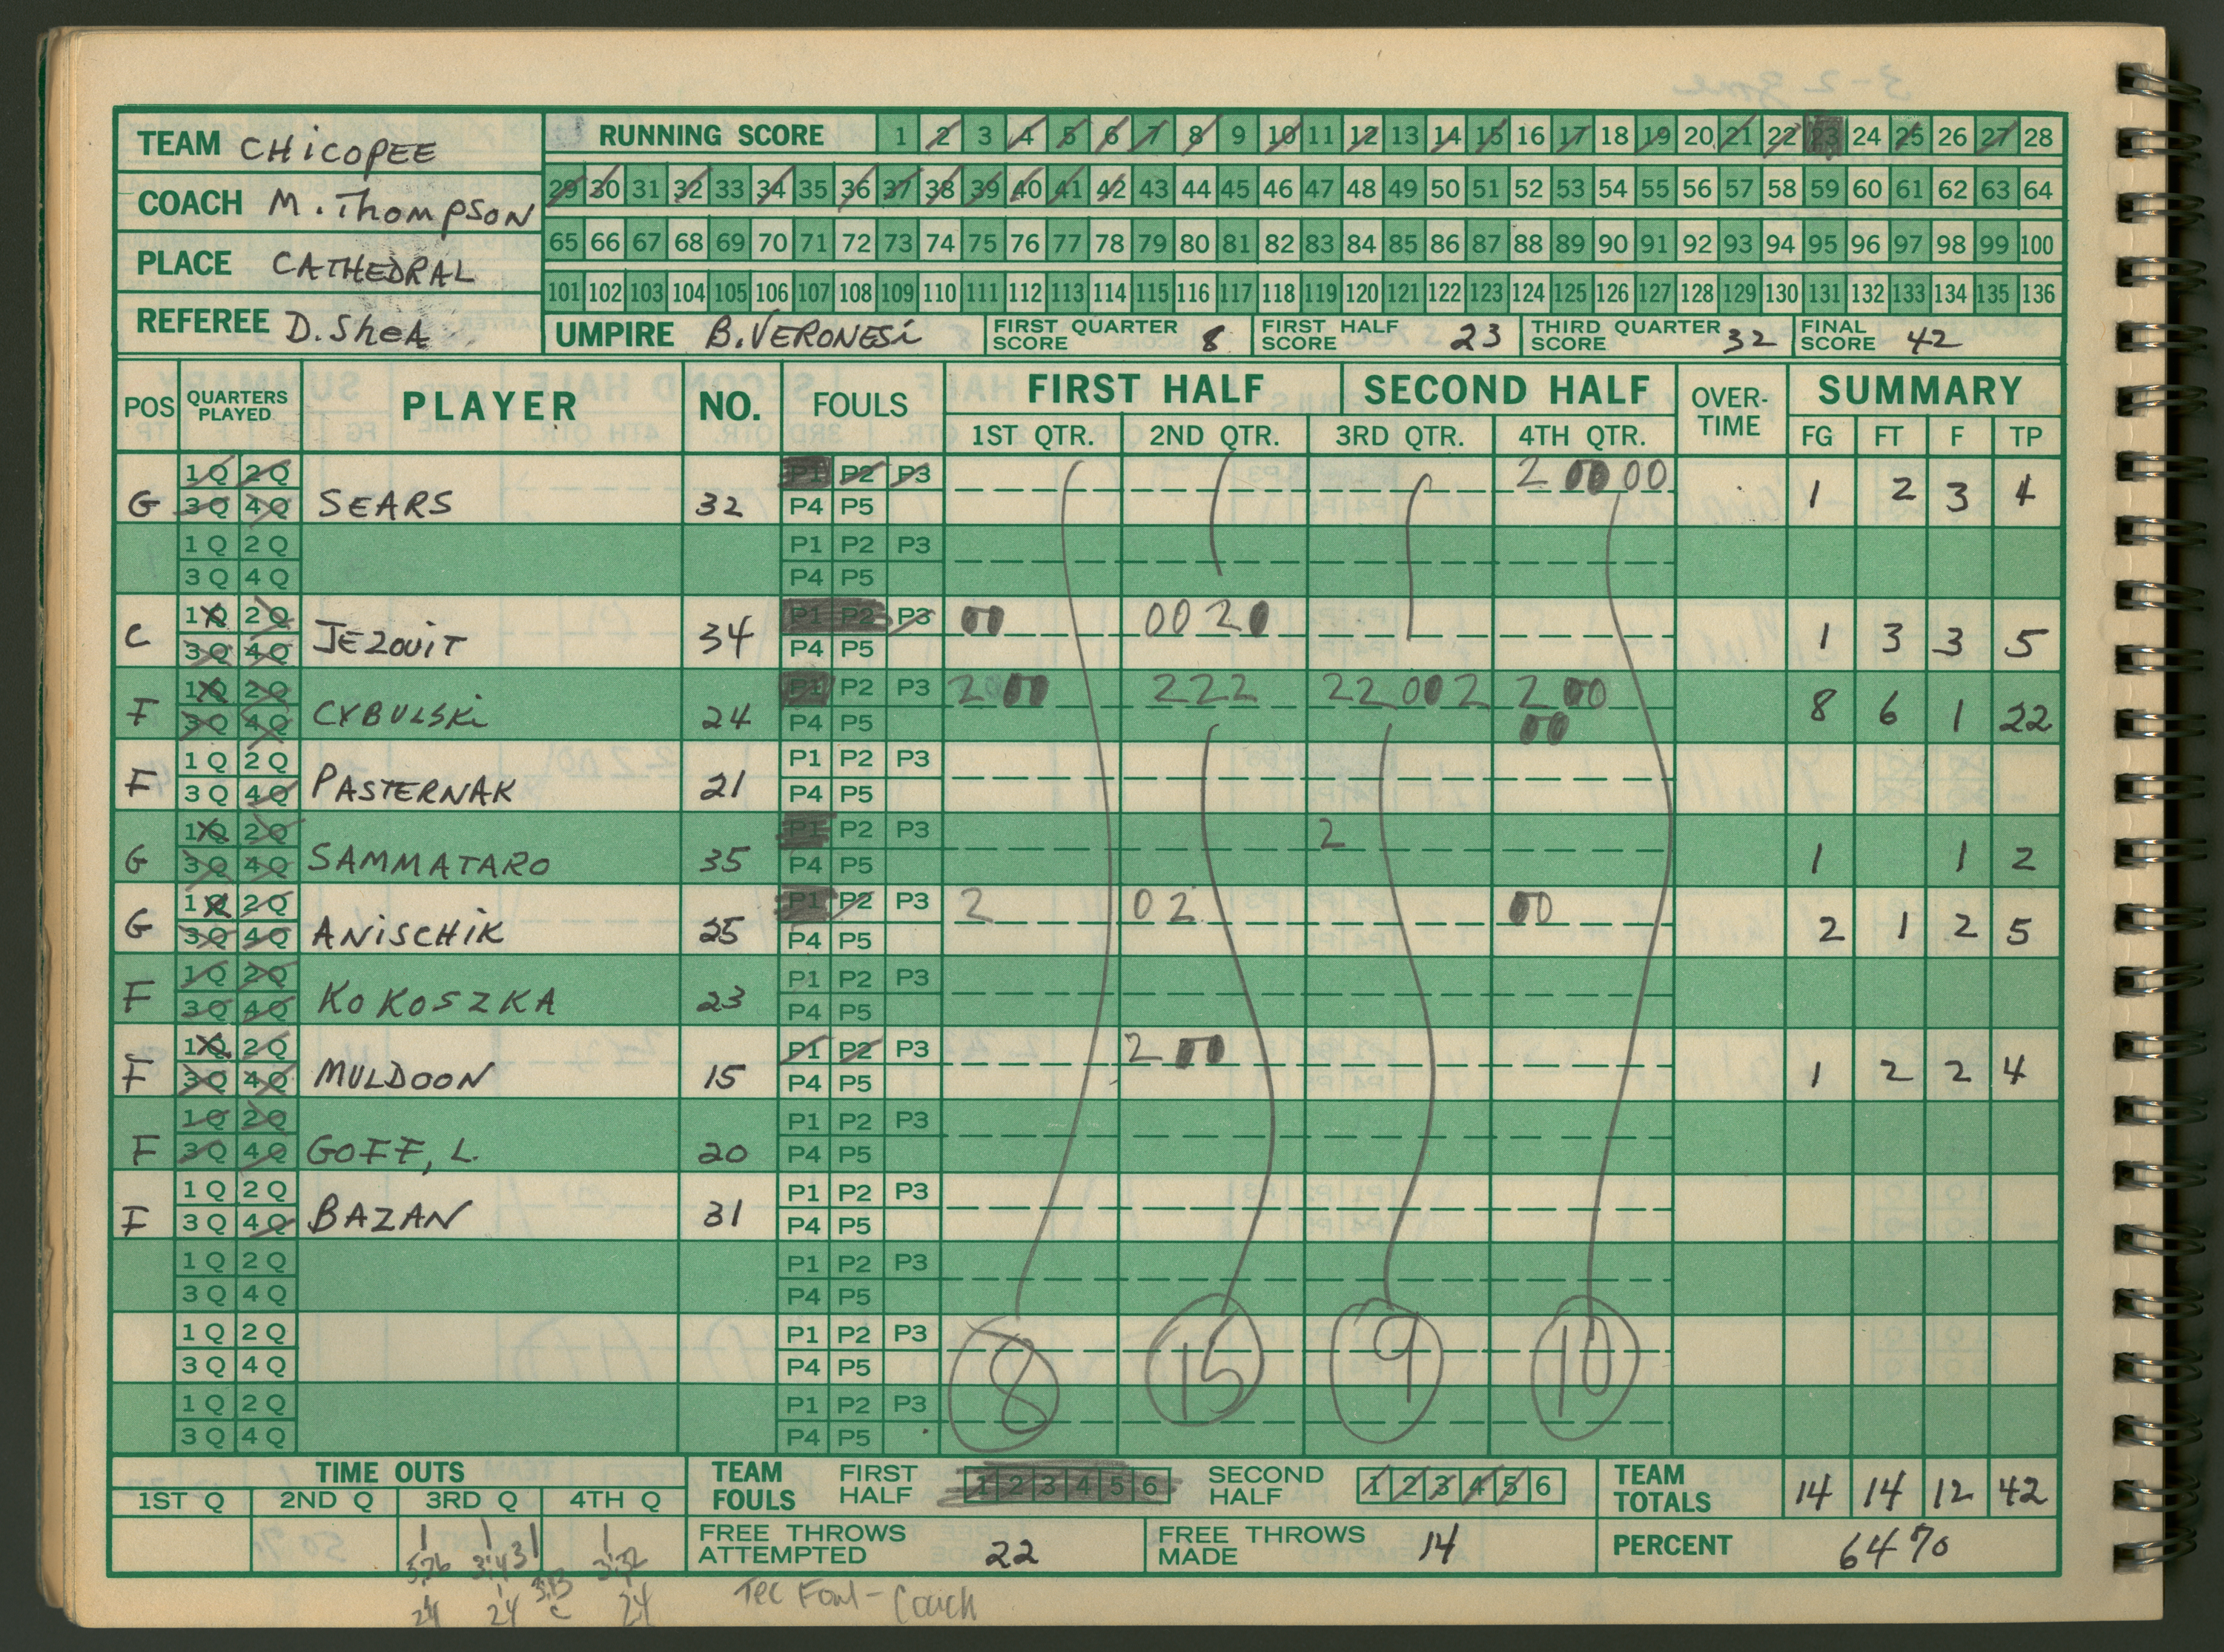 TEAM CHICOPEE
COACH M. THOMPSON
PLACE CATHEDRAL
REFEREE D. SHEA
RUNNING SCORE 1 2 3 4 5 6 7 8 9 10 11 12 13 14 15 16 17 18 19 20 21 22 23 24 25 26 27 28
29 30 31 32 33 34 35 36 37 38 39 40 41 42 43 44 45 46 47 48 49 50 51 52 53 54 55 56 57 58 59 60 61 62 63 64
65 66 67 68 69 70 71 72 73 74 75 76 77 78 79 80 81 82 83 84 85 86 87 88 89 90 91 92 93 94 95 96 97 98 99 100
101 102 103 104 105 106 107 108 109 110 111 112 113 114 115 116 117 118 119 120 121 122 123 124 125 126 127 128 129 130 131 132 133 134 135 136
UMPIRE B. VERONESI FIRST QUARTER SCORE 8 FIRST HALF SCORE 23 THIRD QUARTER SCORE 32 FINAL SCORE 42
POS QUARTERS PLAYED PLAYER NO. FOULS FIRST HALF SECOND HALF OVER-TIME SUMMARY
1ST QTR. 2ND QTR. 3RD QTR. 4TH QTR. FG FT F TP
1Q 2Q P1 P2 P3 2 00 00
G 3Q 4Q SEARS 32 P4 P5 1 2 3 4
1Q 2Q P1 P2 P3
3Q 4Q P4 P5
1Q 2Q P1 P2 P3 00 0020
C 3Q 4Q JEZOUIT 34 P4 P5 1 3 3 5
1Q 2Q P1 P2 P3 2 00 222 22 00 2 2 00
F 3Q 4Q CYBULSKI 24 P4 P5 00 8 6 1 22
1Q 2Q P1 P2 P3
F 3Q 4Q PASTERNAK 21 P4 P5
1Q 2Q P1 P2 P3 2
G 3Q 4Q SAMMATARO 35 P4 P5 1 1 2
1Q 2Q P1 P2 P3 2 02 00
G 3Q 4Q ANISCHIK 25 P4 P5 2 1 2 5
1Q 2Q P1 P2 P3
F 3Q 4Q KOKOSZKA 23 P4 P5
1Q 2Q P1 P2 P3 2 00
F 3Q 4Q MULDOON 15 P4 P5 1 2 2 4
1Q 2Q P1 P2 P3
F 3Q 4Q GOFF, L. 20 P4 P5
1Q 2Q P1 P2 P3
F 3Q 4Q BAZAN 31 P4 P5
1Q 2Q P1 P2 P3
3Q 4Q P4 P5
1Q 2Q P1 P2 P3
3Q 4Q P4 P5
8 15 9 10
1Q 2Q P1 P2 P3
3Q 4Q P4 P5
TIME OUTS TEAM FOULS FIRST HALF 1 2 3 4 5 6 SECOND HALF 1 2 3 4 5 6 TEAM TOTALS 14 14 12 42
1ST Q 2ND Q 3RD Q 4TH Q
FREE THROWS ATTEMPTED 22 FREE THROWS MADE 14 PERCENT 64%
24 24 C 24
Tec Foul - Coach